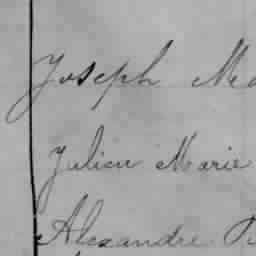 Joseph Ma
Julien Marie
Alexandre